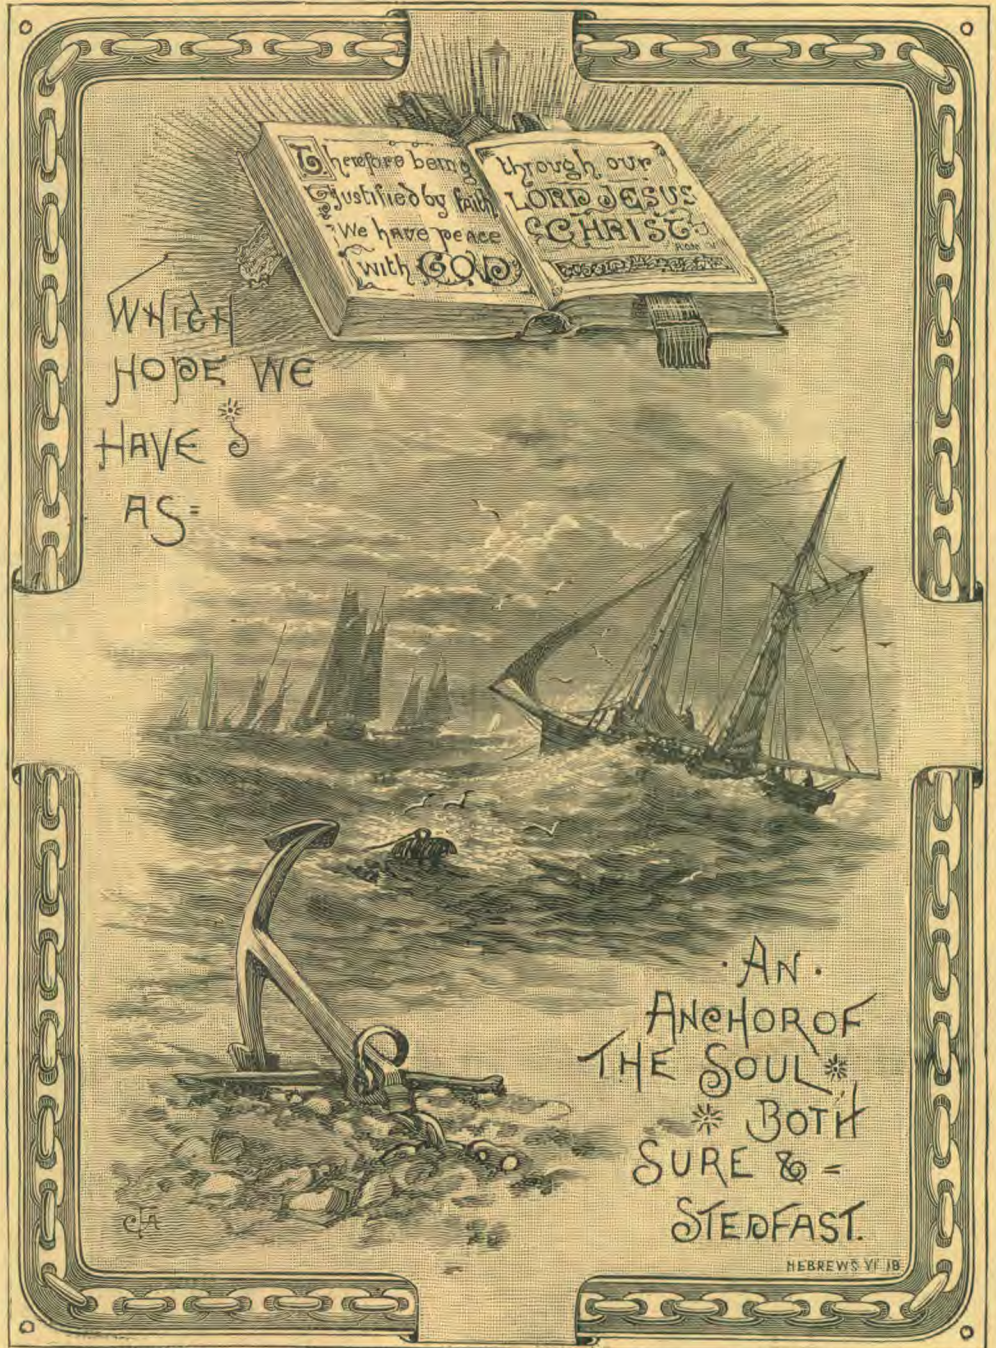 Therefore being
Justified by faith
We have peace
with GOD
through our
LORD JESUS
CHRIST
ROM V
WHICH
HOPE WE
HAVE
AS=
·AN·
ANCHOR OF
THE SOUL
BOTH
SURE & =
STEDFAST.
HEBREWS VI 18
CTA